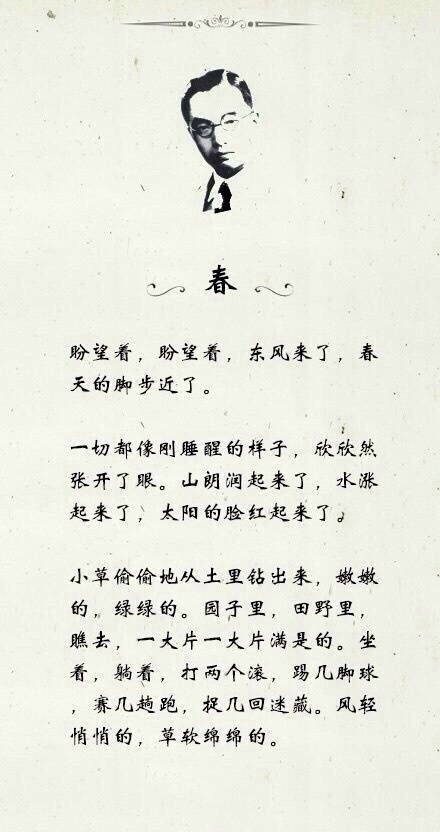 春
盼望着，盼望着，东风来了，春
天的脚步近了。
一切都像刚睡醒的样子，欣欣然
张开了眼。山朗润起来了，水涨
起来了，太阳的脸红起来了。
小草偷偷地从土里钻出来，嫩嫩
的，绿绿的。园子里，田野里，
瞧去，一大片一大片满是的。坐
着，躺着，打两个滚，踢几脚球
，赛几趟跑，捉几回迷藏。风轻
悄悄的，草软绵绵的。